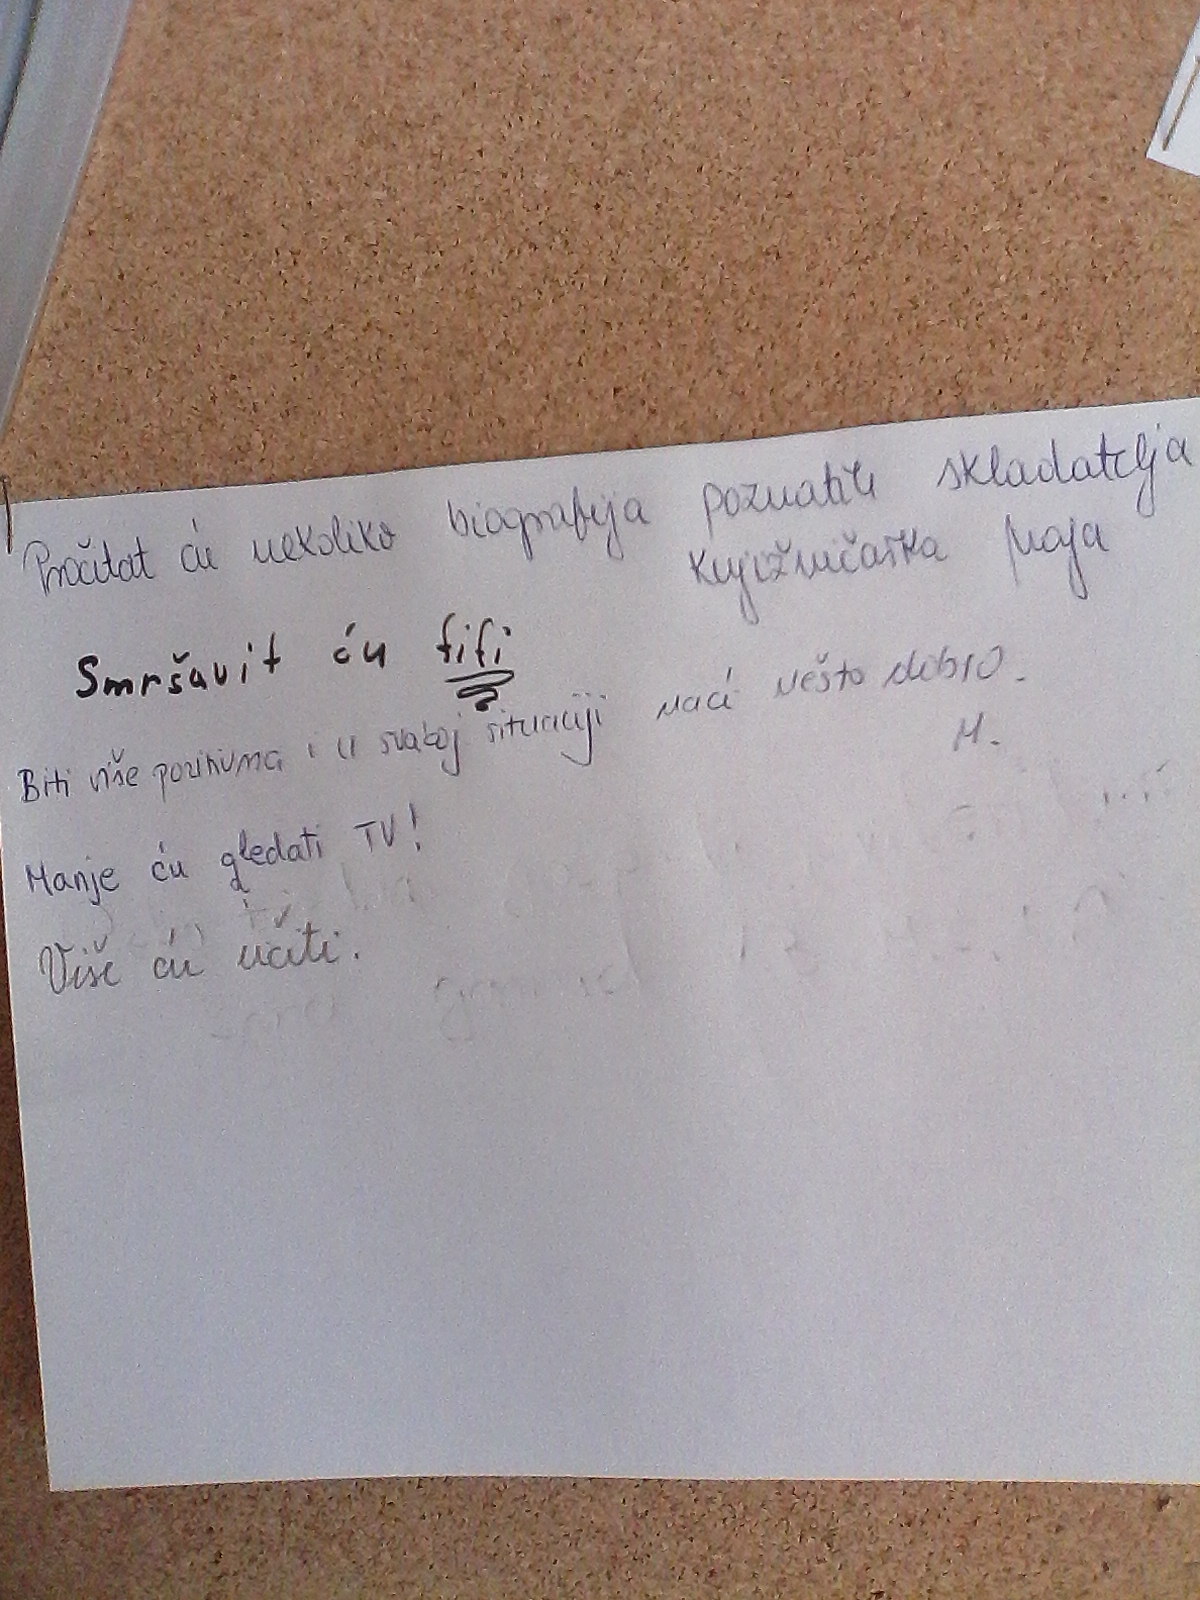 Pročitat ću nekoliko biografija poznatih skladatelja
Knjižničarka Maja
Smršavit ću fifi
Biti više pozitivna i u svakoj situaciji naći nešto dobro.
M.
Manje ću gledati TV!
Više ću učiti.